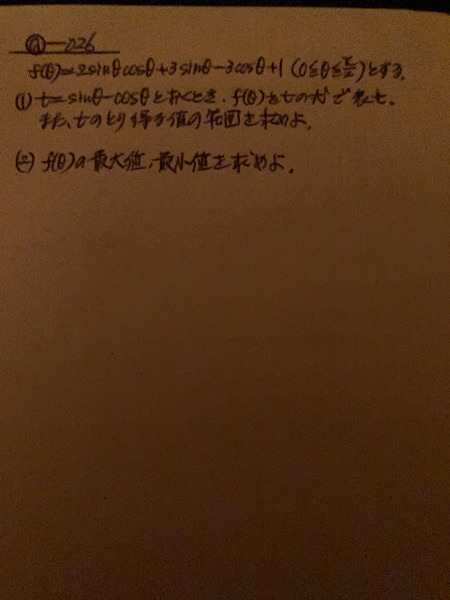 ⓐ-026
f(θ)=2sinθcosθ+3sinθ-3cosθ+1 (0≦θ≦π/2)とする.
(1) t=sinθ-cosθとおくとき. f(θ)をtの式で表せ。
また、tのとり得る値の範囲を求めよ.
(2) f(θ)の最大値,最小値を求めよ.